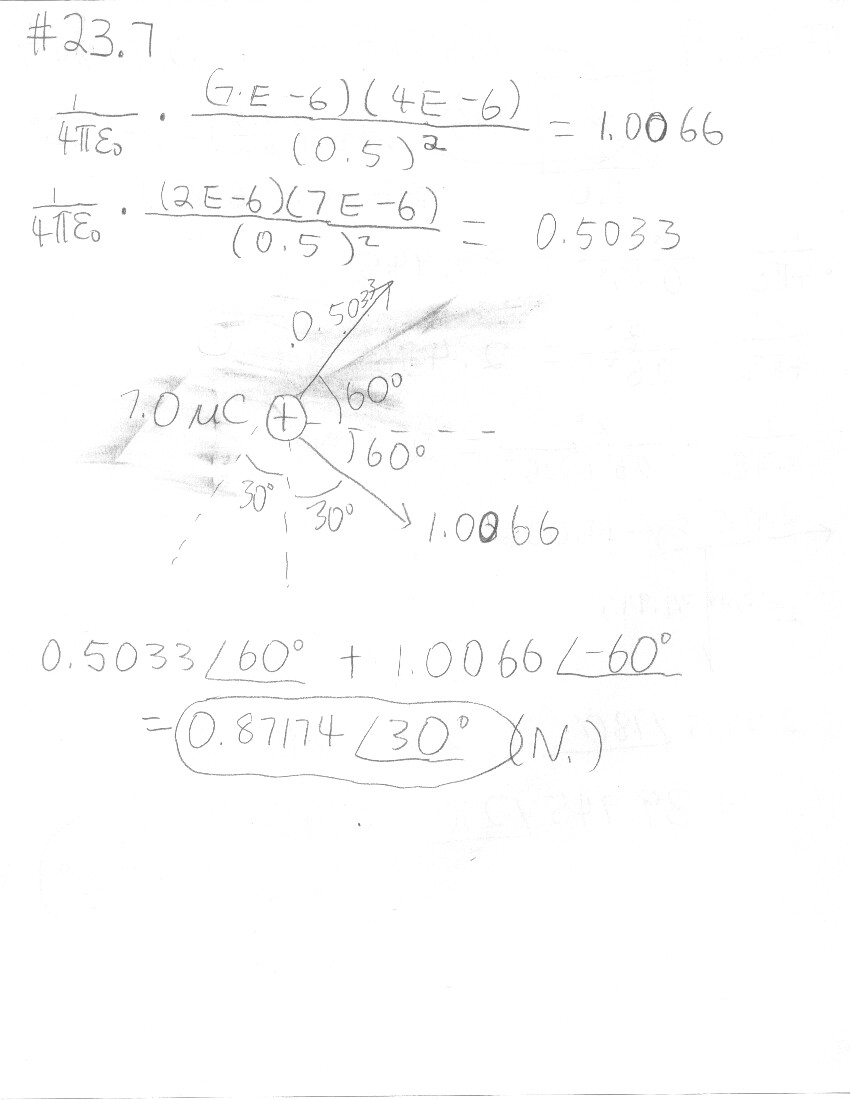 #23.7
1/4πε₀ · (7.E-6)(4E-6)/(0.5)² = 1.0066
1/4πε₀ · (2E-6)(7E-6)/(0.5)² = 0.5033
0.5033
7.0 μC + 60°
60°
30° 30° 1.0066
0.5033∠60° + 1.0066∠-60°
= 0.87174∠30° (N.)